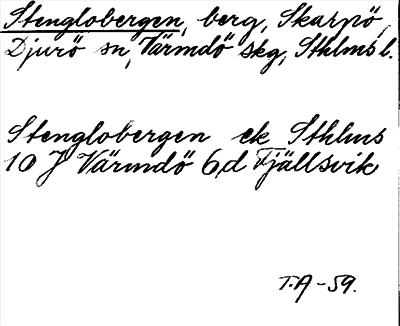 Stenglobergen, berg, Skarpö,
Djurö sn, Värmdö skg, Sthlms l.
Stenglobergen ek Sthlms
10 J Värmdö 6d Fjällsvik
T.A -59.